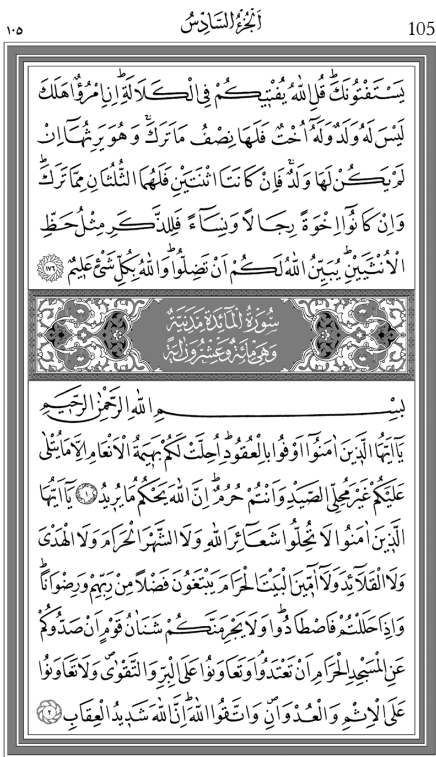 ١٠٥ اَلْجُزْءُ السَّادِسُ 105
يَسْتَفْتُونَكَۜ قُلِ اللّٰهُ يُفْتٖيكُمْ فِي الْكَلَالَةِۜ اِنِ امْرُؤٌا هَلَكَ
لَيْسَ لَهُ وَلَدٌ وَلَهُٓ اُخْتٌ فَلَهَا نِصْفُ مَا تَرَكَۚ وَهُوَ يَرِثُهَٓا اِنْ
لَمْ يَكُنْ لَهَا وَلَدٌۜ فَاِنْ كَانَتَا اثْنَتَيْنِ فَلَهُمَا الثُّلُثَانِ مِمَّا تَرَكَۜ
وَاِنْ كَانُٓوا اِخْوَةً رِجَالًا وَنِسَٓاءً فَلِلذَّكَرِ مِثْلُ حَظِّ
الْاُنْثَيَيْنِۜ يُبَيِّنُ اللّٰهُ لَكُمْ اَنْ تَضِلُّواۜ وَاللّٰهُ بِكُلِّ شَيْءٍ عَلٖيمٌ ﴿١٧٦﴾
سُورَةُ الْمَائِدَةِ مَدَنِيَّةٌ
وَهِيَ مِائَةٌ وَعِشْرُونَ اٰيَةً
بِسْمِ اللّٰهِ الرَّحْمٰنِ الرَّحٖيمِ
يَٓا اَيُّهَا الَّذٖينَ اٰمَنُٓوا اَوْفُوا بِالْعُقُودِۜ اُحِلَّتْ لَكُمْ بَهٖيمَةُ الْاَنْعَامِ اِلَّا مَا يُتْلٰى
عَلَيْكُمْ غَيْرَ مُحِلِّي الصَّيْدِ وَاَنْتُمْ حُرُمٌۜ اِنَّ اللّٰهَ يَحْكُمُ مَا يُرٖيدُ ﴿١﴾ يَٓا اَيُّهَا
الَّذٖينَ اٰمَنُوا لَا تُحِلُّوا شَعَٓائِرَ اللّٰهِ وَلَا الشَّهْرَ الْحَرَامَ وَلَا الْهَدْيَ
وَلَا الْقَلَٓائِدَ وَلَٓا اٰمّٖينَ الْبَيْتَ الْحَرَامَ يَبْتَغُونَ فَضْلًا مِنْ رَبِّهِمْ وَرِضْوَانًاۜ
وَاِذَا حَلَلْتُمْ فَاصْطَادُواۜ وَلَا يَجْرِمَنَّكُمْ شَنَاٰنُ قَوْمٍ اَنْ صَدُّوكُمْ
عَنِ الْمَسْجِدِ الْحَرَامِ اَنْ تَعْتَدُواۢ وَتَعَاوَنُوا عَلَى الْبِرِّ وَالتَّقْوٰىۖ وَلَا تَعَاوَنُوا
عَلَى الْاِثْمِ وَالْعُدْوَانِۖ وَاتَّقُوا اللّٰهَۜ اِنَّ اللّٰهَ شَدٖيدُ الْعِقَابِ ﴿٢﴾